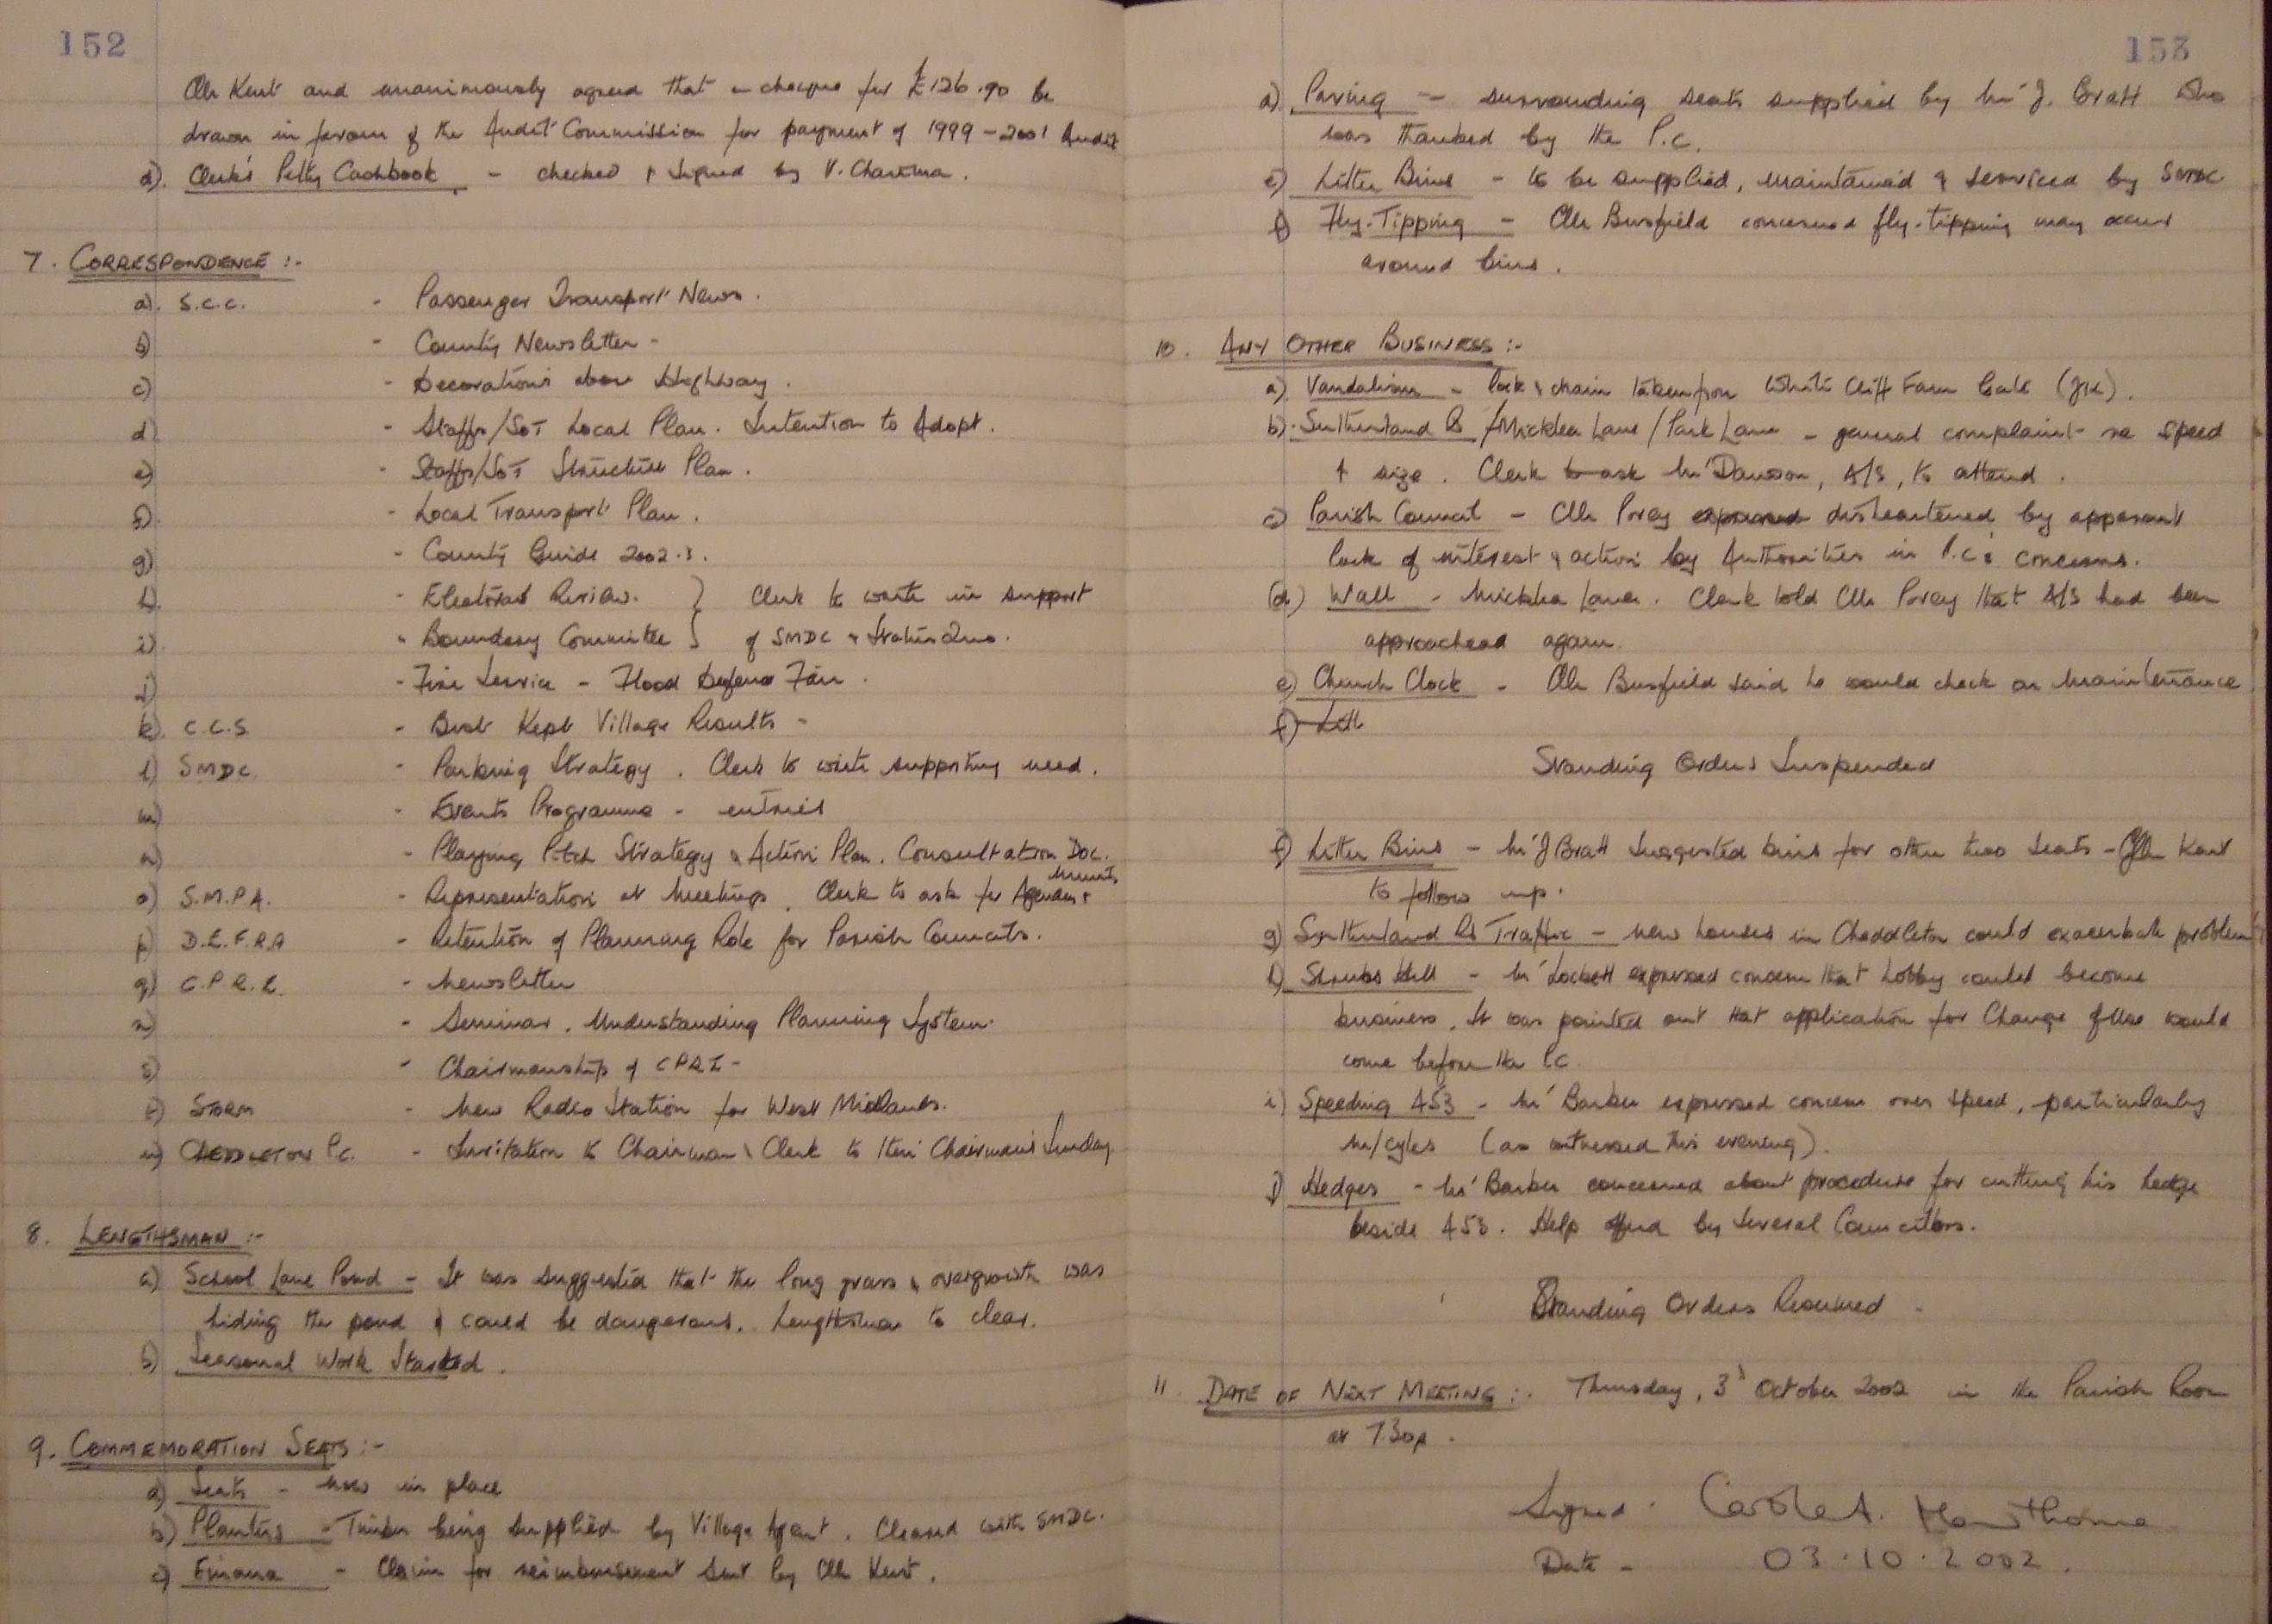 152
Cllr Kent and unanimously agreed that a cheque for £126.90 be
drawn in favour of the Audit Commission for payment of 1999-2001 Audit
d). Clerk's Petty Cashbook - checked & signed by V. Chairman.
7. CORRESPONDENCE :-
a). S.C.C. - Passenger Transport News.
b) - County Newsletter -
c) - Decorations above Highway.
d) - Staffs/SoT Local Plan. Intention to Adopt.
e) - Staffs/SoT Structure Plan.
f). - Local Transport Plan.
g) - County Guide 2002.3.
h). - Electoral Review. } Clerk to write in support
i) - Boundary Committee } of SMDC & Status Quo.
j) - Fire Service - Flood Defence Fair.
k). C.C.S. - Best Kept Village Results -
l) SMDC. - Parking Strategy. Clerk to write supporting need.
m) - Events Programme - entries
n) - Playing Pitch Strategy & Action Plan. Consultation Doc.
o) S.M.P.A. - Representation at Meetings. Clerk to ask for Agendas & Minutes
p) D.E.F.R.A - Retention of Planning Role for Parish Councils.
q) C.P.R.E. - Newsletter
r) - Seminar. Understanding Planning System.
s) - Chairmanship of CPRE -
t) STORM - New Radio Station for West Midlands.
u) CHEDDLETON P.C. - Invitation to Chairman & Clerk to their Chairman's Sunday
8. LENGTHSMAN :-
a) School Lane Pond - It was suggested that the long grass & overgrowth was
hiding the pond & could be dangerous. Lengthsman to clear.
b) Seasonal Work Started.
9. COMMEMORATION SEATS :-
a) Seats - now in place
b) Planters - Timber being supplied by Village Agent. Cleared with SMDC.
c) Finance - Claim for reimbursement sent by Cllr Kent.
153
d) Paving - surrounding seats supplied by Mr J. Bratt who
was thanked by the P.C.
e) Litter Bins - to be supplied, maintained & serviced by SMDC
f) Fly-Tipping - Cllr Busfield concerned fly-tipping may occur
around bins.
10. ANY OTHER BUSINESS :-
a) Vandalism - lock & chain taken from White Cliff Farm Gate (JK).
b). Sutherland Rd /Micklea Lane/Park Lane - general complaint re speed
& size. Clerk to ask Mr Dawson, A/S, to attend.
c) Parish Council - Cllr Povey expressed disheartened by apparent
lack of interest & action by Authorities in P.C's concerns.
(d) Wall - Micklea Lane. Clerk told Cllr Povey that A/S had been
approached again.
e) Church Clock - Cllr Busfield said he would check on Maintenance
f) Litt
Standing Orders Suspended
f) Litter Bins - Mr J Bratt suggested bins for other two seats - Cllr Kent
to follow up.
g) Sutherland Rd Traffic - new houses in Cheddleton could exacerbate problem
h) Shrubs Hill - Mr Lockett expressed concern that hobby could become
business. It was pointed out that application for Change of Use would
come before the P.C.
i) Speeding A53 - Mr Barker expressed concern over speed, particularly
m/cycles (as witnessed this evening).
j) Hedges - Mr Barker concerned about procedure for cutting his hedge
beside A53. Help offered by several Councillors.
Standing Orders Resumed -
11. DATE OF NEXT MEETING :- Thursday, 3rd October 2002 in the Parish Room
at 7.30p.
Signed - Carole A. Hawthorne
Date - 03.10.2002.